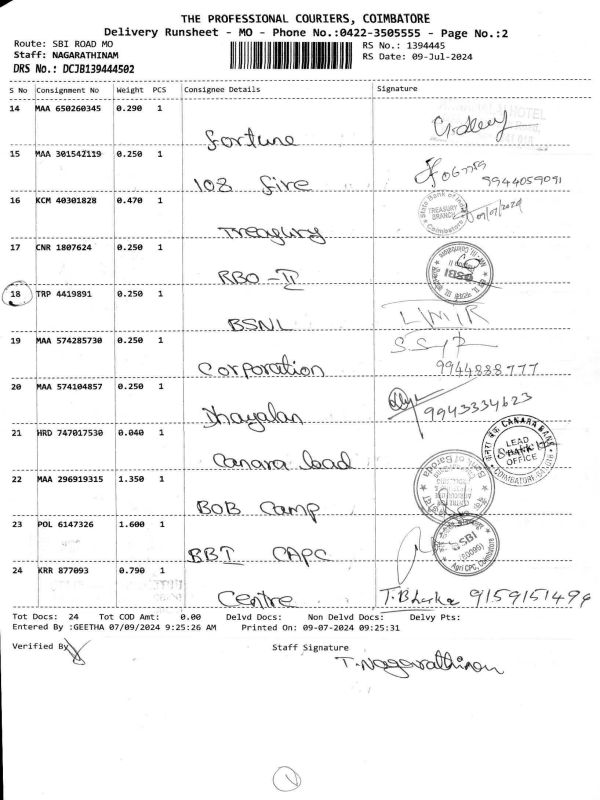 THE PROFESSIONAL COURIERS, COIMBATORE
Delivery Runsheet - MO - Phone No.:0422-3505555 - Page No.:2
Route: SBI ROAD MO RS No.: 1394445
Staff: NAGARATHINAM RS Date: 09-Jul-2024
DRS No.: DCJB139444502
S No Consignment No Weight PCS Consignee Details Signature
14 MAA 650260345 0.290 1
Fortune
15 MAA 301542119 0.250 1
108 fire 9944059091
16 KCM 40301828 0.470 1
Treasury
State Bank of India TREASURY BRANCH Coimbatore
17 CNR 1807624 0.250 1
RBO-II
SBI
18 TRP 4419891 0.250 1
BSNL
19 MAA 574285730 0.250 1
Corporation 9944888777
20 MAA 574104857 0.250 1
Dhayalan 9943334623
21 HRD 747017530 0.040 1
Canara lead
CANARA BANK LEAD BANK OFFICE COIMBATORE
22 MAA 296919315 1.350 1
BOB Camp
Bank of Baroda
23 POL 6147326 1.600 1
BBI CAPC
SBI Agri CPC, Coimbatore
24 KRR 877093 0.790 1
Centre 9159151496
Tot Docs: 24 Tot COD Amt: 0.00 Delvd Docs: Non Delvd Docs: Delvy Pts:
Entered By :GEETHA 07/09/2024 9:25:26 AM Printed On: 09-07-2024 09:25:31
Verified By Staff Signature
T. Nagarathinam